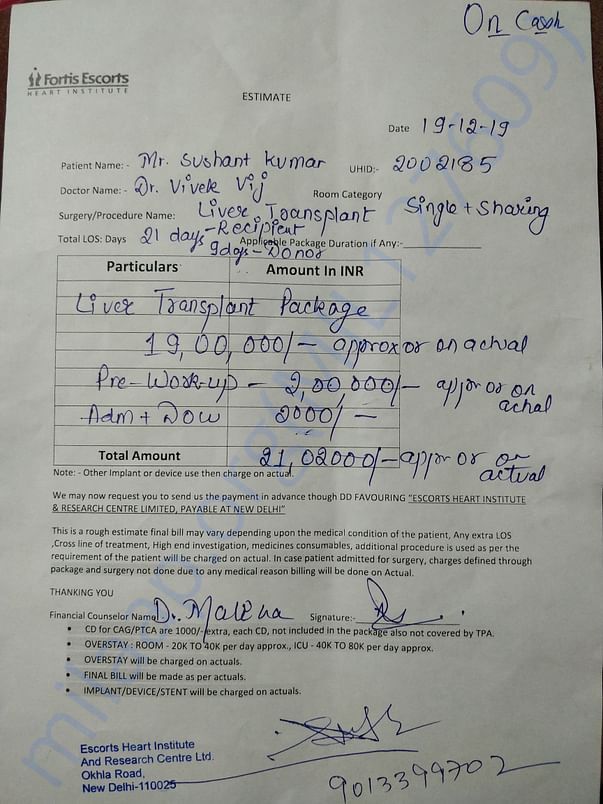 On Cash
Fortis Escorts
HEART INSTITUTE
ESTIMATE
Date 19-12-19
Patient Name: - Mr. Sushant Kumar UHID:- 2002185
Doctor Name: - Dr. Vivek Vij Room Category
Surgery/Procedure Name: Liver Transplant Single + Sharing
Total LOS: Days 21 days - Recipient Applicable Package Duration if Any:-
9days - Donor
Particulars Amount In INR
Liver Transplant Package
19,00,000/- approx or on actual
Pre-Work-up - 2,00,000/- appr or on
achal
Adm + DOW 2000/-
Total Amount 21,02000/- appr or on
actual
Note: - Other Implant or device use then charge on actual.
We may now request you to send us the payment in advance though DD FAVOURING "ESCORTS HEART INSTITUTE
& RESEARCH CENTRE LIMITED, PAYABLE AT NEW DELHI"
This is a rough estimate final bill may vary depending upon the medical condition of the patient, Any extra LOS
,Cross line of treatment, High end investigation, medicines consumables, additional procedure is used as per the
requirement of the patient will be charged on actual. In case patient admitted for surgery, charges defined through
package and surgery not done due to any medical reason billing will be done on Actual.
THANKING YOU
Financial Counselor Name Dr. Signature:-
• CD for CAG/PTCA are 1000/-extra, each CD, not included in the package also not covered by TPA.
• OVERSTAY : ROOM - 20K TO 40K per day approx., ICU - 40K TO 80K per day approx.
• OVERSTAY will be charged on actuals.
• FINAL BILL will be made as per actuals.
• IMPLANT/DEVICE/STENT will be charged on actuals.
Escorts Heart Institute
And Research Centre Ltd.
Okhla Road,
New Delhi-110025
9013399702